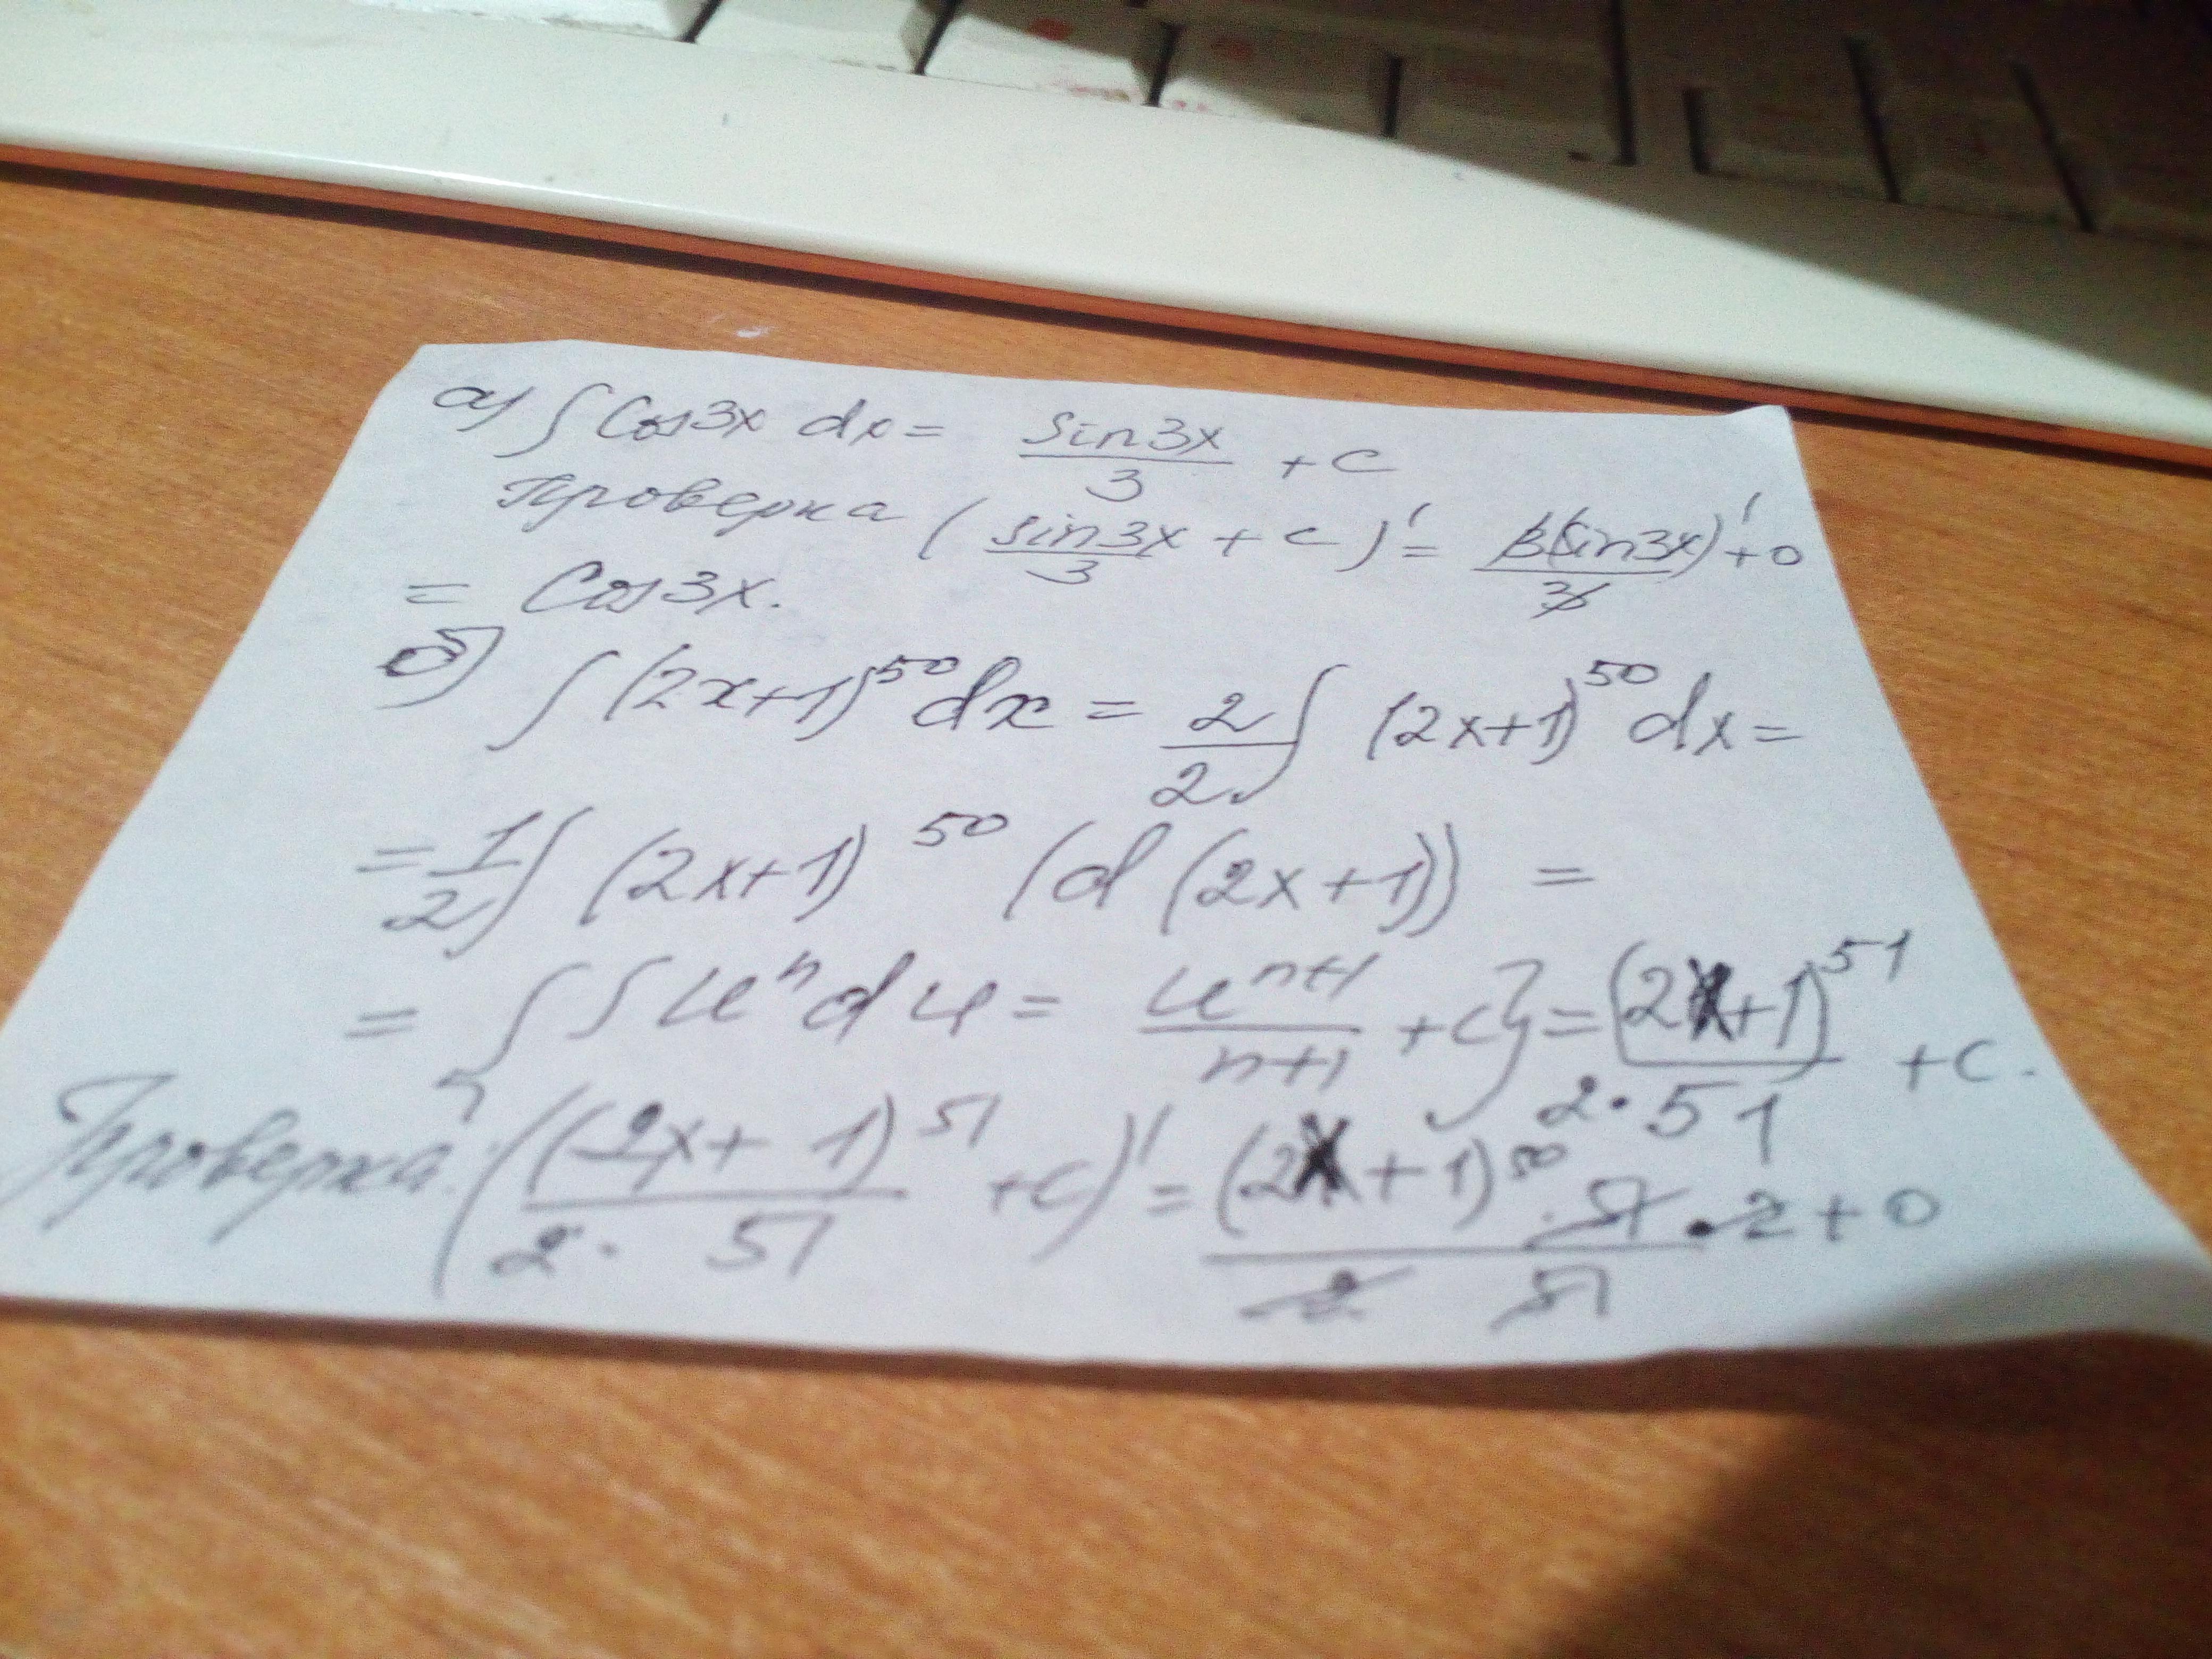 а) ∫ Cos3x dx = sin3x/3 + c
Проверка (sin3x/3 + c)' = 3(sin3x)'/3 + 0
= Cos3x.
б) ∫ (2x+1)^50 dx = 2/2 ∫ (2x+1)^50 dx =
= 1/2 ∫ (2x+1)^50 (d(2x+1)) =
= {∫ u^n du = u^(n+1)/(n+1) + c} = (2x+1)^51/(2·51) + c.
Проверка: ((2x+1)^51/(2·51) + c)' = (2x+1)^50·51·2/(2 51) + 0